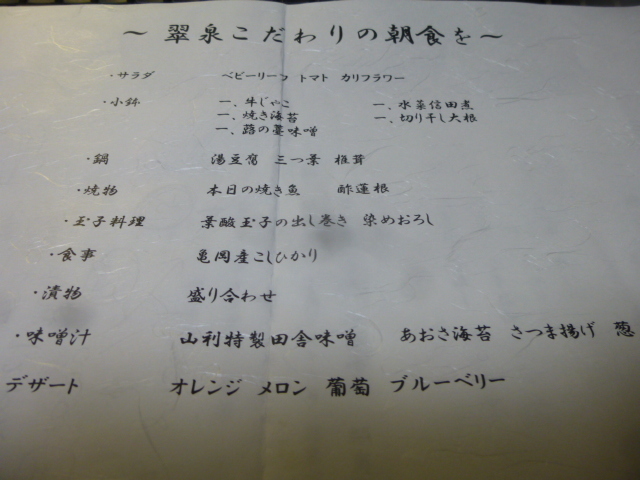 ～ 翠泉こだわりの朝食を～
・サラダ ベビーリーフ トマト カリフラワー
・小鉢 一、牛じゃこ 一、水菜信田煮
一、焼き海苔 一、切り干し大根
一、蕗の薹味噌
・鍋 湯豆腐 三つ葉 椎茸
・焼物 本日の焼き魚 酢蓮根
・玉子料理 葉酸玉子の出し巻き 染めおろし
・食事 亀岡産こしひかり
・漬物 盛り合わせ
・味噌汁 山利特製田舎味噌 あおさ海苔 さつま揚げ 葱
デザート オレンジ メロン 葡萄 ブルーベリー